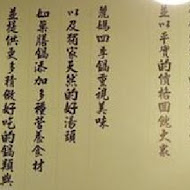 並以平實的價格回饋大家
麓碼四季鍋重視美味
以及獨家天然的好湯頭
如藥膳鍋添加多種營養食材
並提供更多精緻好吃的鍋類與